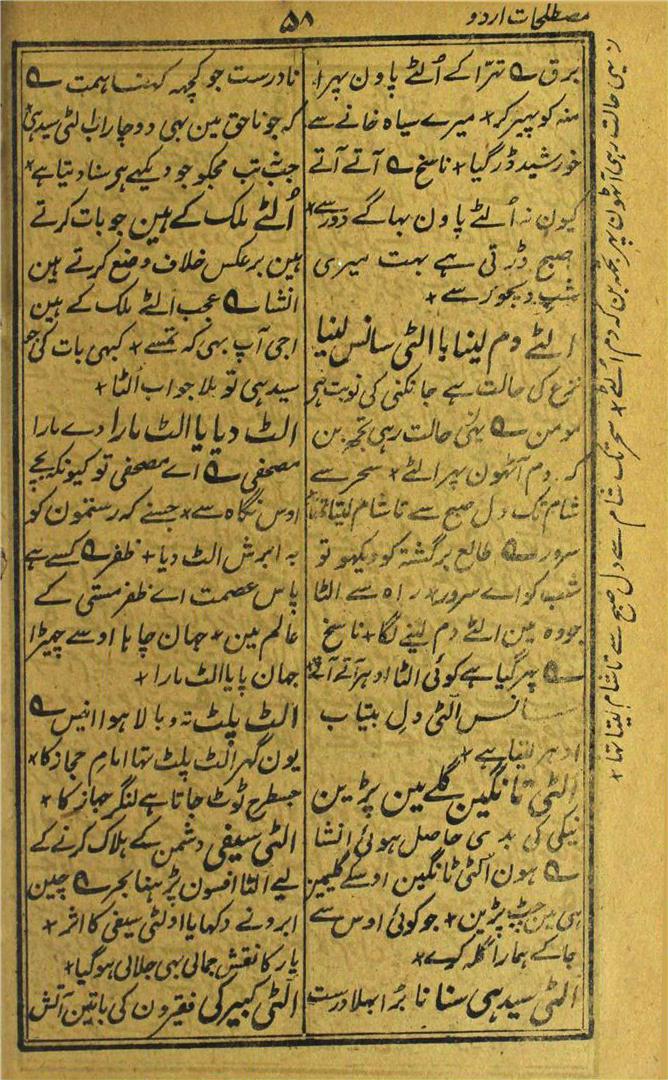 مصطلحات اردو
۵۸
برق ؎ تہرّا کے اُلٹے پاون پہرا
منہ کو پہیر کر * میرے سیاہ خانے سے
خورشید ڈر گیا * ناسخ ؎ آتے آتے
کیون نہ اُلٹے پاون بہاگے دور سے *
صبح ڈرتی ہے بہت میری
شب دیجور سے *
الٹے دم لینا یا الٹی سانس لینا
نزع کی حالت ہے جانکنی کی نوبت ہی
مومن ؎ یہی حالت رہی تجہ بن
کہ دم آٹہون پہر الٹے * سحر سے
شام تک دل صبح سے تا شام لیتا تہا
سرور ؎ طالع برگشتہ کو دیکہو تو
شب کو اے سرور * راہ سے الٹا
جو وہ مین الٹے دم لینے لگا * ناسخ
؎ پہر گیا ہے کوئی الٹا ادہر آتے آتے
سانس الٹی دل بیتاب
ادہر لیتا ہے *
الٹی ٹانگین گلے مین پڑین
نیکی کی بدی حاصل ہوئی انشا
؎ ہون الٹی ٹانگین اوسکے گلیمین
ہی مین چپ پڑین * جو کوئی اوس سے
جا کے ہمارا گلہ کرے *
الٹی سیدہی سنانا بُرا بہلا درست
نادرست جو کچہہ کہنا ہمت ؎
کہ جو ناحق مین بہی دو چار الٹی سیدہی
جب تب مجکو جو دیکہے ہر سنا دیتا ہے *
اُلٹے ملک کے ہین جو بات کرتے
ہین برعکس خلاف وضع کرتے ہین
انشا ؎ عجب الٹے ملک کے ہین
اجی آپ بہی کہ تمسے * کبہی بات کی جو
سیدہی تو بلا جواب اُلٹا *
الٹ دیا یا الٹ مارا دے مارا
مصحفی ؎ اے مصحفی تو کیونکہ بچے
اوس نگاہ سے * جسنے کہ رستمون کو
بہ ابرش الٹ دیا * ظفر ؎ کسے ہے
پاس عصمت اے ظفر مستی کے
عالم مین * جہان چاہا اوسے چہیڑا
جہان پایا الٹ مارا *
الٹ پلٹ تہ و بالا ہوا انیس ؎
یون گہر الٹ پلٹ تہا امام حجاز کا *
جسطرح ٹوٹ جاتا ہے لنگر جہاز کا *
الٹی سیفی دشمن کے ہلاک کرنے کے
لیے الٹا افسون پڑہنا بحر ؎ چین
ابرو نے دکہایا اولٹی سیفی کا اثر *
یار کا نقش جمالی بہی جلالی ہو گیا *
الٹی کبیر کی فقیرون کی باتین آتش
؎ یہی حالت رہی آٹہون پہر تجہ بن کہ دم الٹے * سحر تک شام سے دل صبح سے تا شام لیتا تہا *